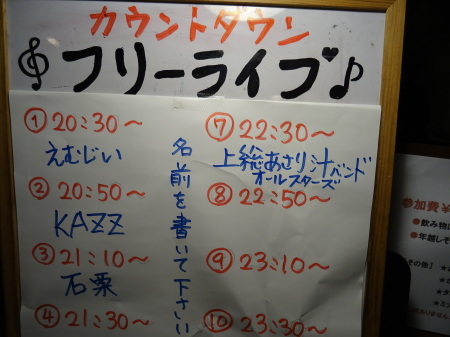 カウントダウン
フリーライブ
① 20:30～
えむじい
② 20:50～
KAZZ
③ 21:10～
石粟
④ 21:30～
名前を書いて下さい
⑦ 22:30～
上総あさり汁バンド
オールスターズ
⑧ 22:50～
⑨ 23:10～
⑩ 23:30～
●加費¥
●飲み物
●年越しそ
その他】